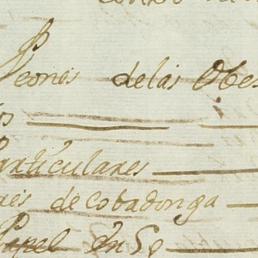 Peones de las Obe
os
Particulares
nes de Cobadonga
Papel en So